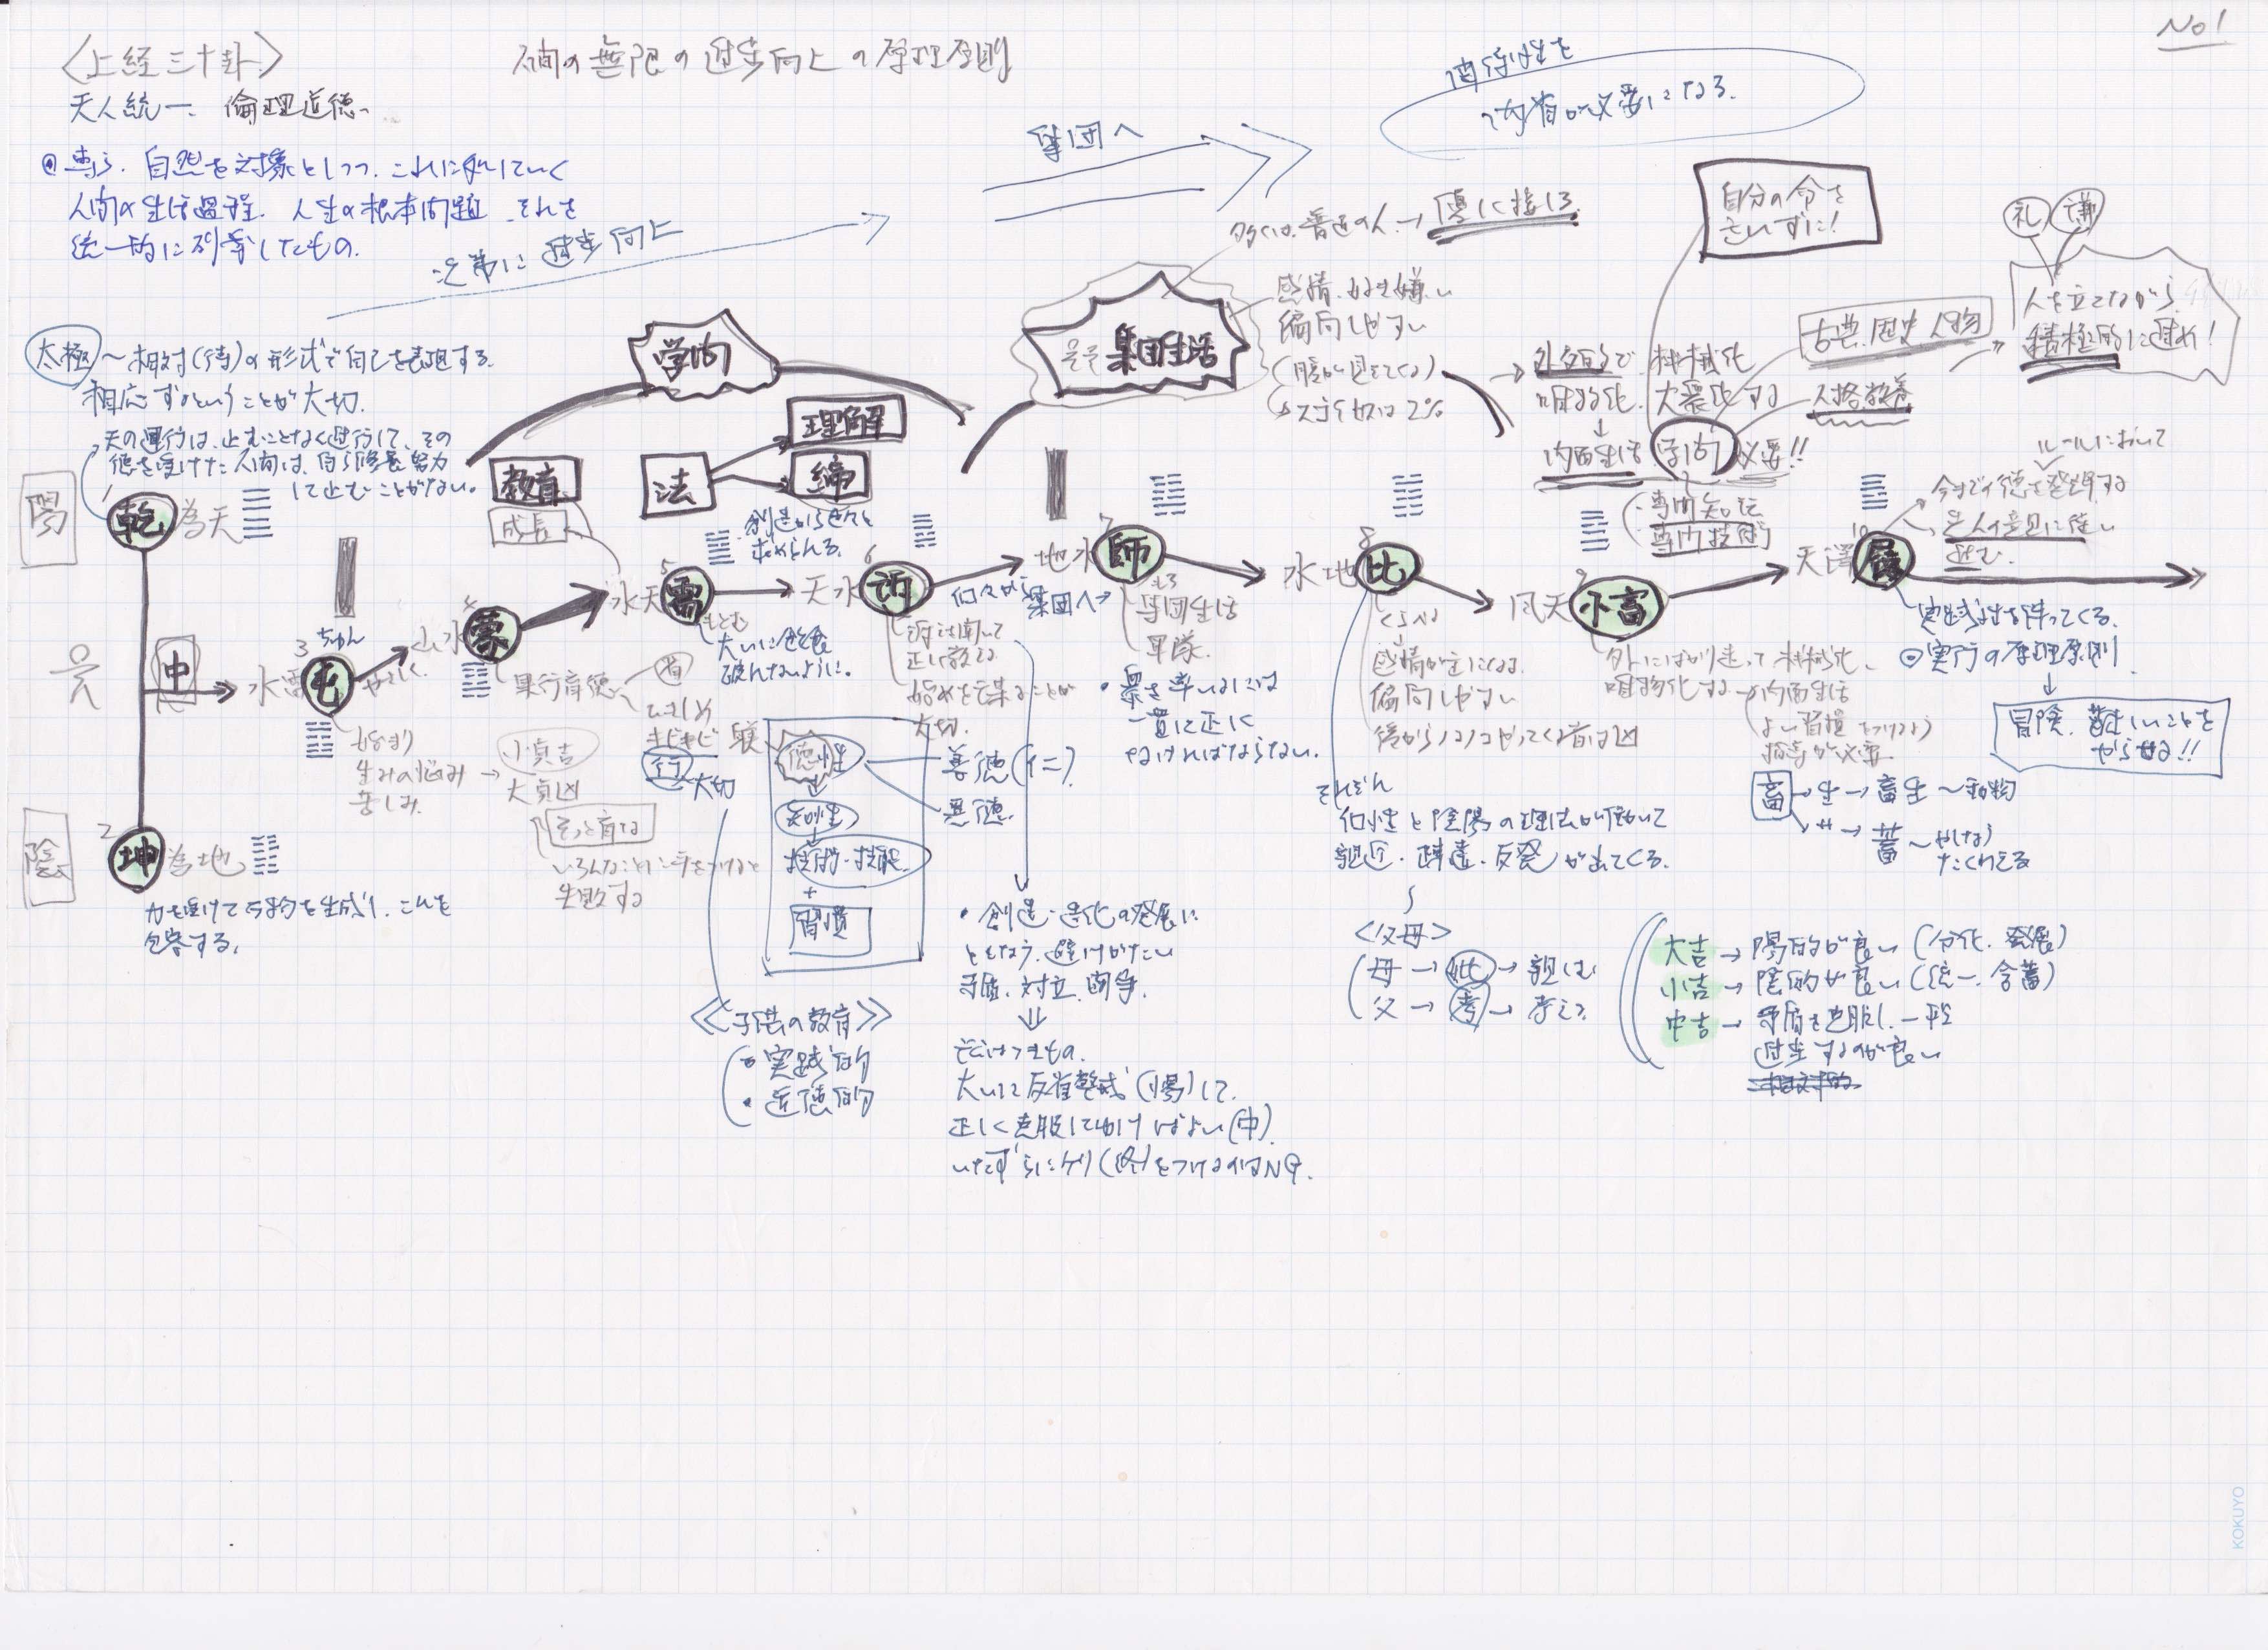 No1
〈上経三十卦〉
人間の無限の進歩向上の原理原則
天人統一、倫理道徳
◎専ら、自然を対象としつつ、これに処していく
人間の生活過程、人生の根本問題、それを
統一的に列挙したもの。
次第に進歩向上
集団へ
内省が必要になる。
太極〜相対(待)の形式で自己を表現する。
相応ずるということが大切。
天の運行は、止むことなく進行して、その
徳を受けた人間は、自ら修養努力
して止むことがない。
陽
1
乾為天
中
陰
2
坤為地
力を受けて万物を生成し、これを
包容する。
3
ちゅん
水雷屯
始まり
生みの悩み
苦しみ
→小貞吉
大貞凶
そっと育な
いろんなことに手をつけると
失敗する
4
山水蒙
果行育徳
育
キビキビ
行
大切
躾
徳性
知性
技術・技能
+
習慣
善徳(仁)
悪徳
《子供の教育》
・実践的
・道徳的
学問
教育
成長
法
理解
締
5
水天需
もとむ
破れないように。
創造から色々と
求められる。
6
天水訟
訟は聞いて
正し教える
始めを謀ることが
大切。
・創造・進化の発展に
ともなう、避けがたい
矛盾、対立、闘争。
⇓
はつきもの。
大いに反省、乾惕(陽)して、
正しく克服してゆけばよい(中)
いたずらにケリ(終)をつけるのはNG.
個々から
集団へ
7
地水師
集団生活
軍隊
・衆を率いるには
一貫に正に
なければならない。
集団生活
多くは、普通の人→優しく接しろ
感情、好き嫌い
偏向しやすい
2%
8
水地比
くらべる
感情が主になる
偏向しやすい
後からノコノコやってくる者は凶
それぞれ
個性と陰陽の理法が働いて
親近・疎遠・反発が出てくる。
〈父母〉
母→比→親しむ
父→考→考える
→外面的で、機械化
唯物化、大衆化する
↓
内面生活
学問
必要!!
・専門知識
・専門技術
自分の令を
古典、歴史、人物
人格教養
9
風天小畜
外にばかり走って、機械化、
唯物化する→内面生活
よい習慣をつけよう
指導が必要
畜→生→畜生〜動物
→艹→蓄〜やしなう
たくわえる
大吉→陽的が良い(分化、発展)
小吉→陰的が良い(統一、含蓄)
中吉→矛盾を克服し、一段
進歩するのが良い
10
天澤履
ルールにおいて
今までの徳を発揮する
先人の意見に従い
進む。
実践性を伴ってくる。
◎実行の原理原則
↓
冒険、難しいことを
やらせる!!
礼
謙
人を立てながら
積極的に進め!
KOKUYO